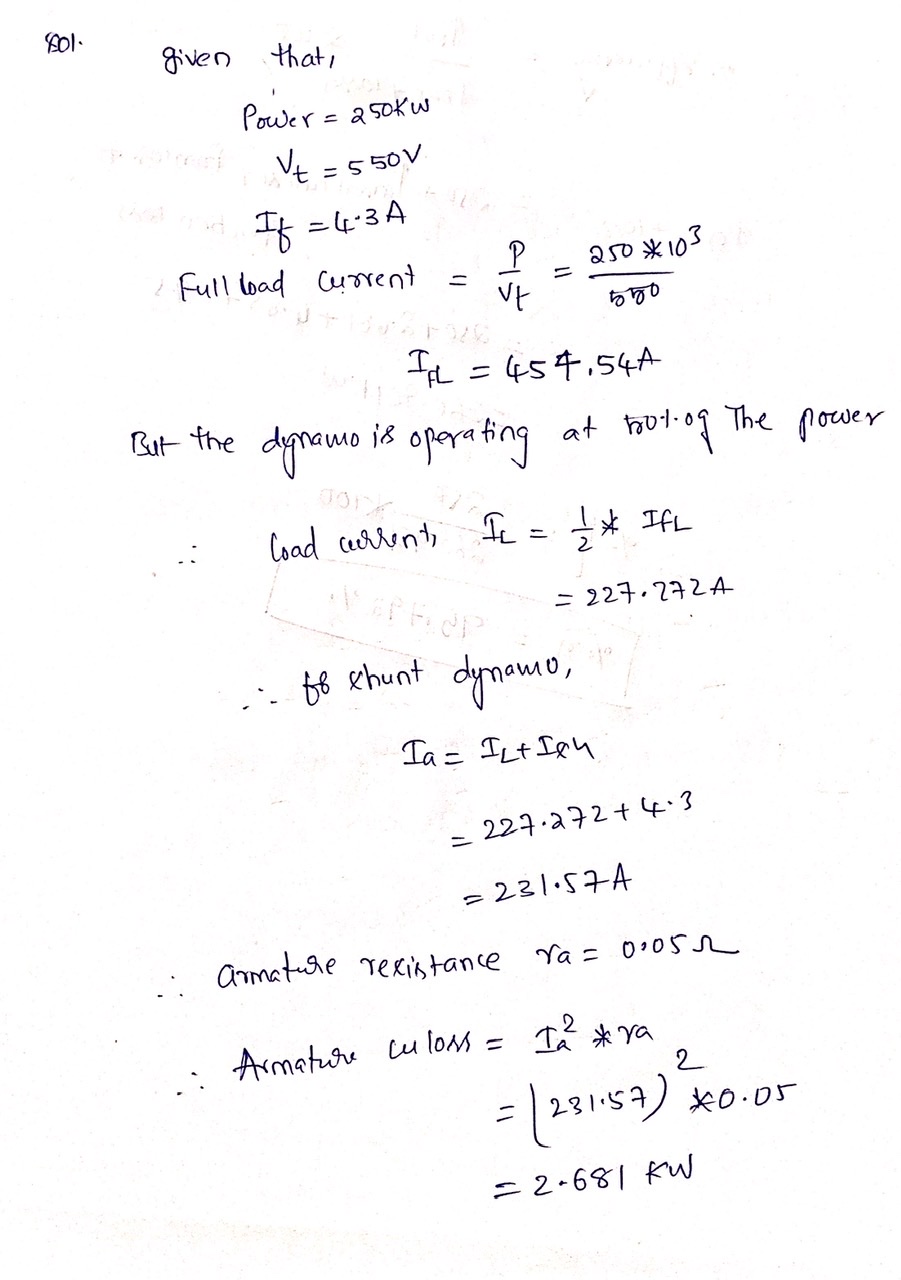 Sol.
given that,
Power = 250KW
Vt = 550V
If = 4.3A
Full load current = P/Vt = 250*10³/550
IfL = 454.54A
But the dynamo is operating at 50% of The power
∴ load current, IL = 1/2 * IfL
= 227.272A
∴ for shunt dynamo,
Ia = IL + Ish
= 227.272 + 4.3
= 231.57A
∴ armature resistance ra = 0.05Ω
∴ Armature cu loss = Ia² * ra
= (231.57)² * 0.05
= 2.681 KW